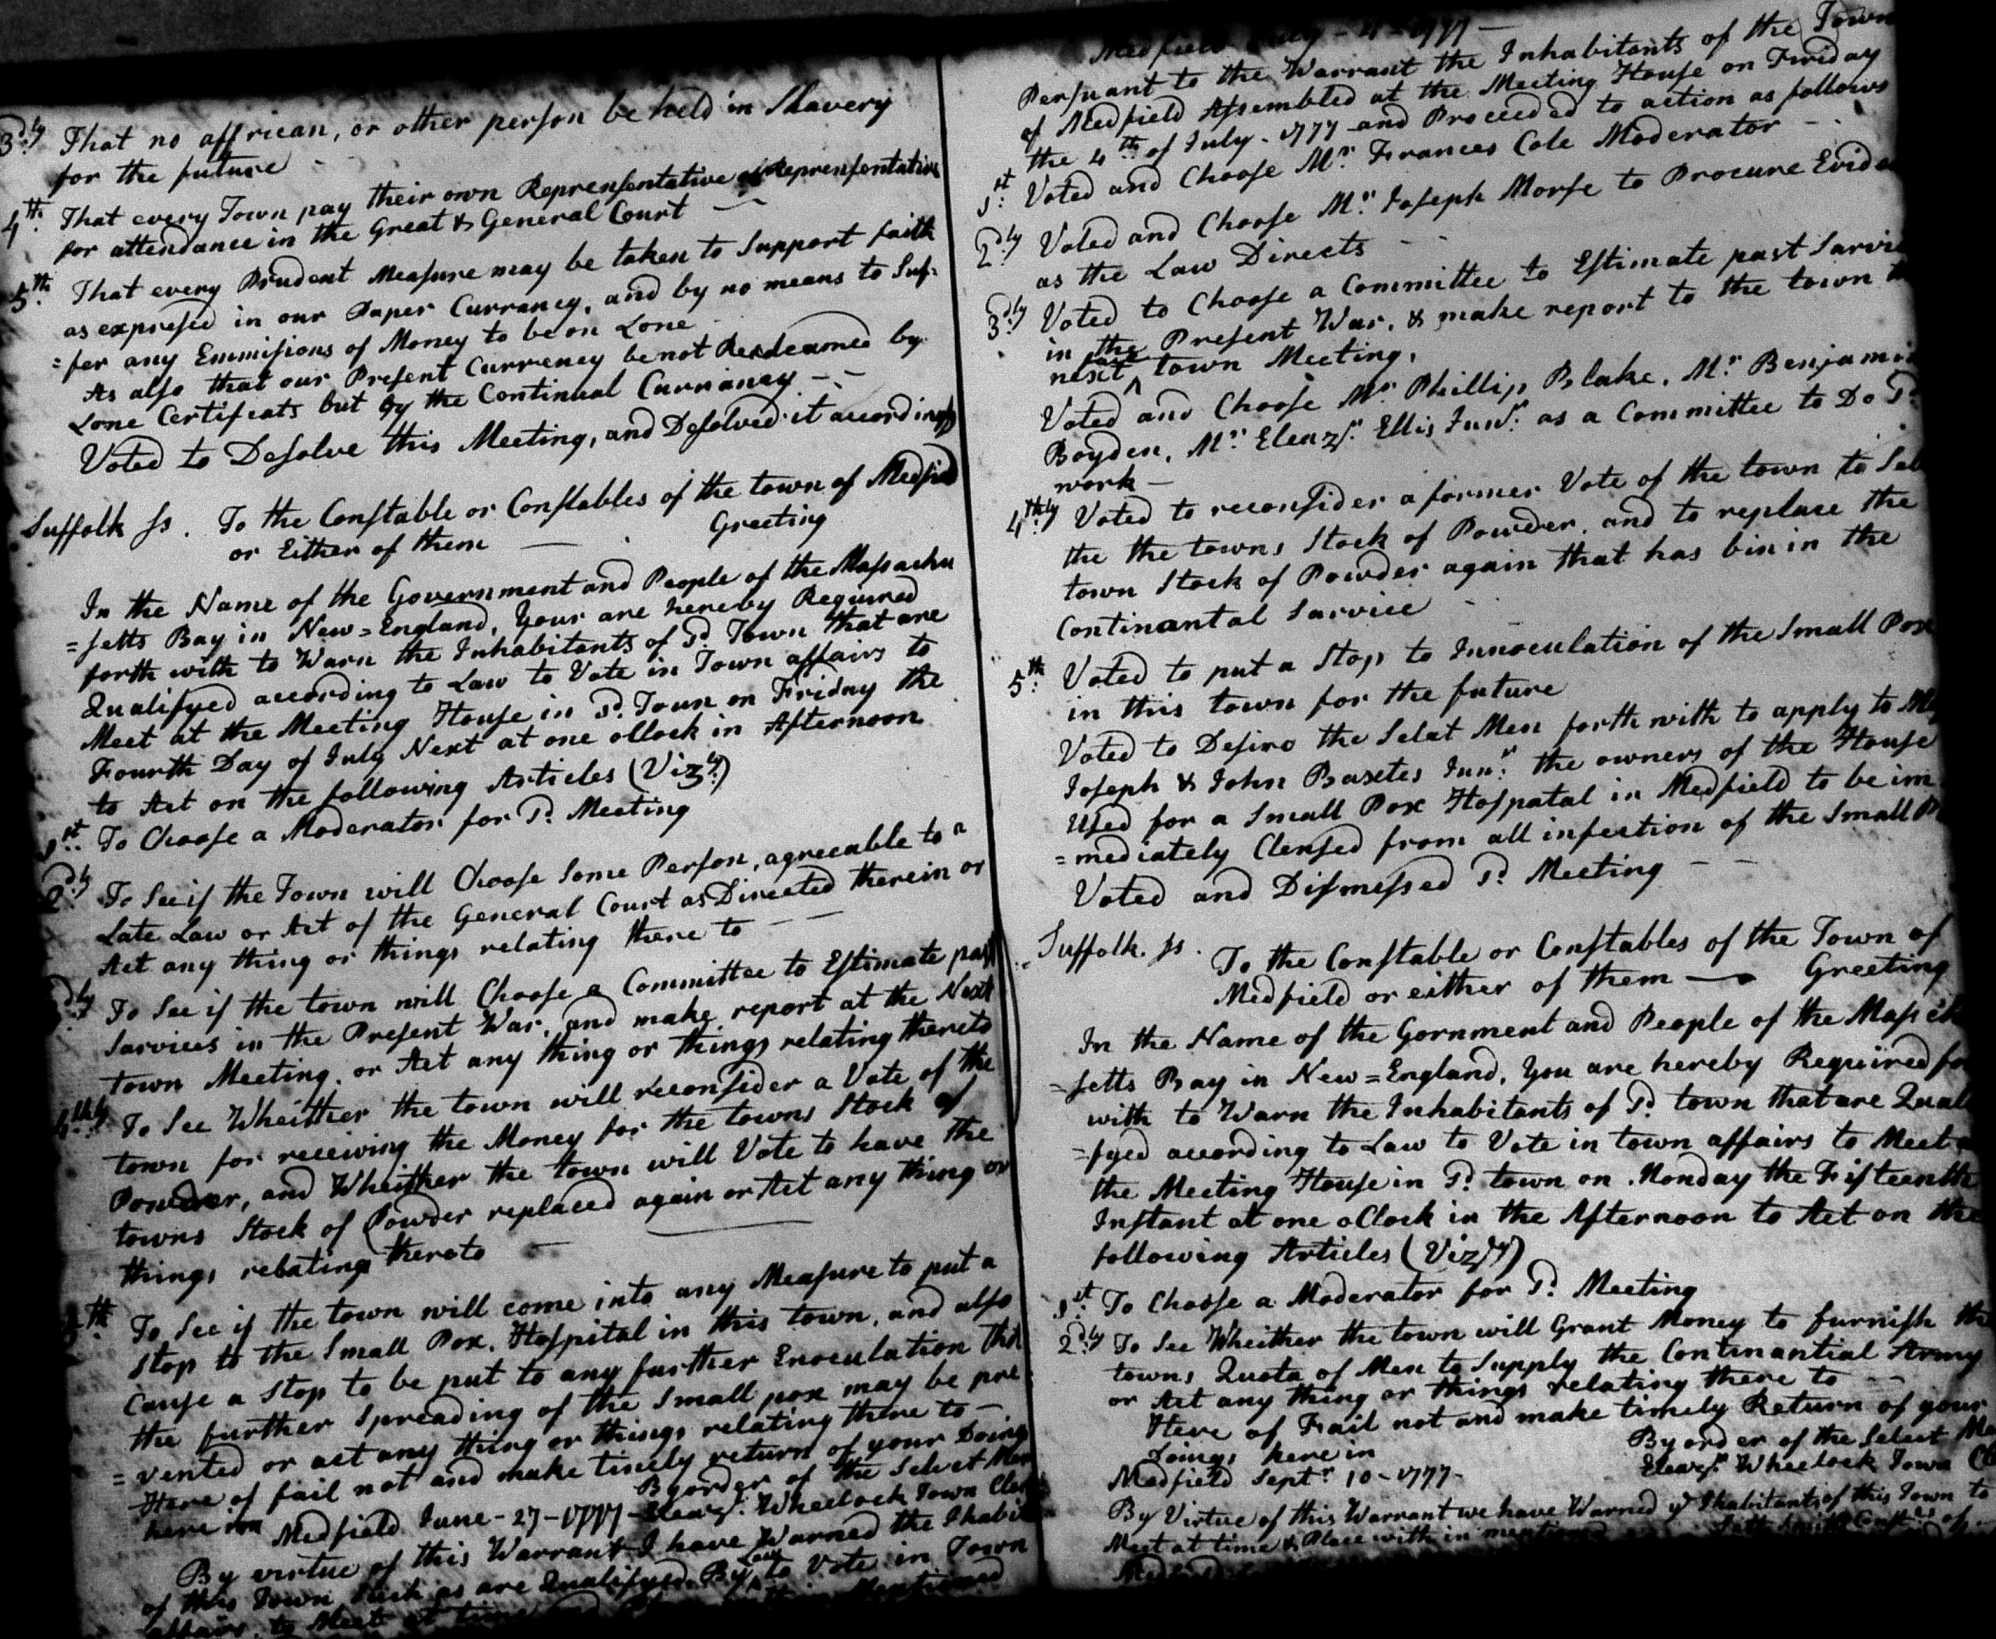 3dly That no affrican, or other person be held in Slavery
for the future
4th That every Town pay their own Reprensentative Reprensentative
for attendance in the Great & General Court
5th That every Prudent Measure may be taken to Support faith
as expressed in our Paper Currancy, and by no means to Suf=
=fer any Emmissions of Money to be on Lone
As also that our Present Currency be not Redeamed by
Lone Certificats but by the Continnal Currancy
Voted to Desolve this Meeting, and Desolved it accordingly
Suffolk ss. To the Constable or Constables of the town of Medfield
or Either of them Greeting
In the Name of the Government and People of the Massachu
=setts Bay in New=England, Your are hereby Required
forth with to Warn the Inhabitants of Sd. Town that are
Qualifyed according to Law to Vote in Town affairs to
Meet at the Meeting House in Sd. Town on Friday the
Fourth Day of July Next at one oClock in Afternoon
to Act on the following Articles (Vizly)
1st. To Choose a Moderator for Sd. Meeting
2dly To See if the Town will Choose Some Person, agreeable to a
Late Law or Act of the General Court as Directed therein or
Act any thing or things relating there to
3dly To See if the town will Choose a Committee to Estimate past
Sarvices in the Present War, and make report at the Next
town Meeting. or Act any thing or things relating thereto
4thly To See Wheither the town will reconsider a Vote of the
town for receiving the Money for the towns Stock of
Powder, and Wheither the town will Vote to have the
towns Stock of Powder replaced again or Act any thing or
things relating thereto
5th To See if the town will come into any Measure to put a
Stop to the Small Pox, Hospital in this town, and also
Cause a Stop to be put to any further Enoculation that
the further Spreading of the Small pox may be pre
=vented or act any thing or things relating there to
Here of fail not and make timely return of your Doings
here in By order of the Select Men
Medfield June-27-1777- Eleazr. Wheelock Town Cler
By virtue of this Warrant I have Warned the Ihabit
of this Town Such as are Qualifyed By Law to Vote in Town
affairs to Meet at time Mentioned
Medfield July-4-1777-
Persuant to the Warrant the Inhabitants of the Town
of Medfield Assembled at the Meeting House on Friday
the 4th of July-1777 and Proceeded to action as follows
1st. Voted and Choose Mr. Frances Cole Moderator
2dly Voted and Choose Mr. Joseph Morse to Procure Evide
as the Law Directs
3dly Voted to Choose a Committee to Estimate past Sarvic
in the Present War, & make report to the town
next town Meeting.
Voted and Choose Mr. Phillip Blake, Mr. Benjamin
Boyden, Mr. Eleazr. Ellis Junr. as a Committee to Do Sd.
work
4thly Voted to reconsider a former Vote of the town to Sel
the the towns Stock of Powder, and to replace the
town Stock of Powder again that has bin in the
Continantal Sarvice
5th Voted to put a Stop to Innoculation of the Small Pox
in this town for the future
Voted to Desire the Selat Men forth with to apply to
Joseph & John Baxtes Junr. the owners of the House
Used for a Small Pox Hospatal in Medfield to be im
=mediately Clensed from all infection of the Small
Voted and Dismissed Sd. Meeting
Suffolk. ss. To the Constable or Constables of the Town of
Medfield or either of them Greeting
In the Name of the Gornment and People of the Massach
=setts Bay in New=England, You are hereby Required for
with to Warn the Inhabitants of Sd. town that are Quali
=fyed according to Law to Vote in town affairs to Meet
the Meeting House in Sd. town on Monday the Fifteenth
Instant at one oClock in the Afternoon to Act on the
following Articles (Vizly)
1st. To Choose a Moderator for Sd. Meeting
2dly To See Wheither the town will Grant Money to furnish the
towns Quota of Men to Supply the Continantial Army
or Act any thing or things relating there to
Here of Fail not and make timely Return of your
Doings here in By order of the Select Me
Medfield Septr. 10-1777- Eleazr. Wheelock Town Cl
By Virtue of this Warrant we have Warned ye Ihabitants of this Town to
Meet at time & Place with in